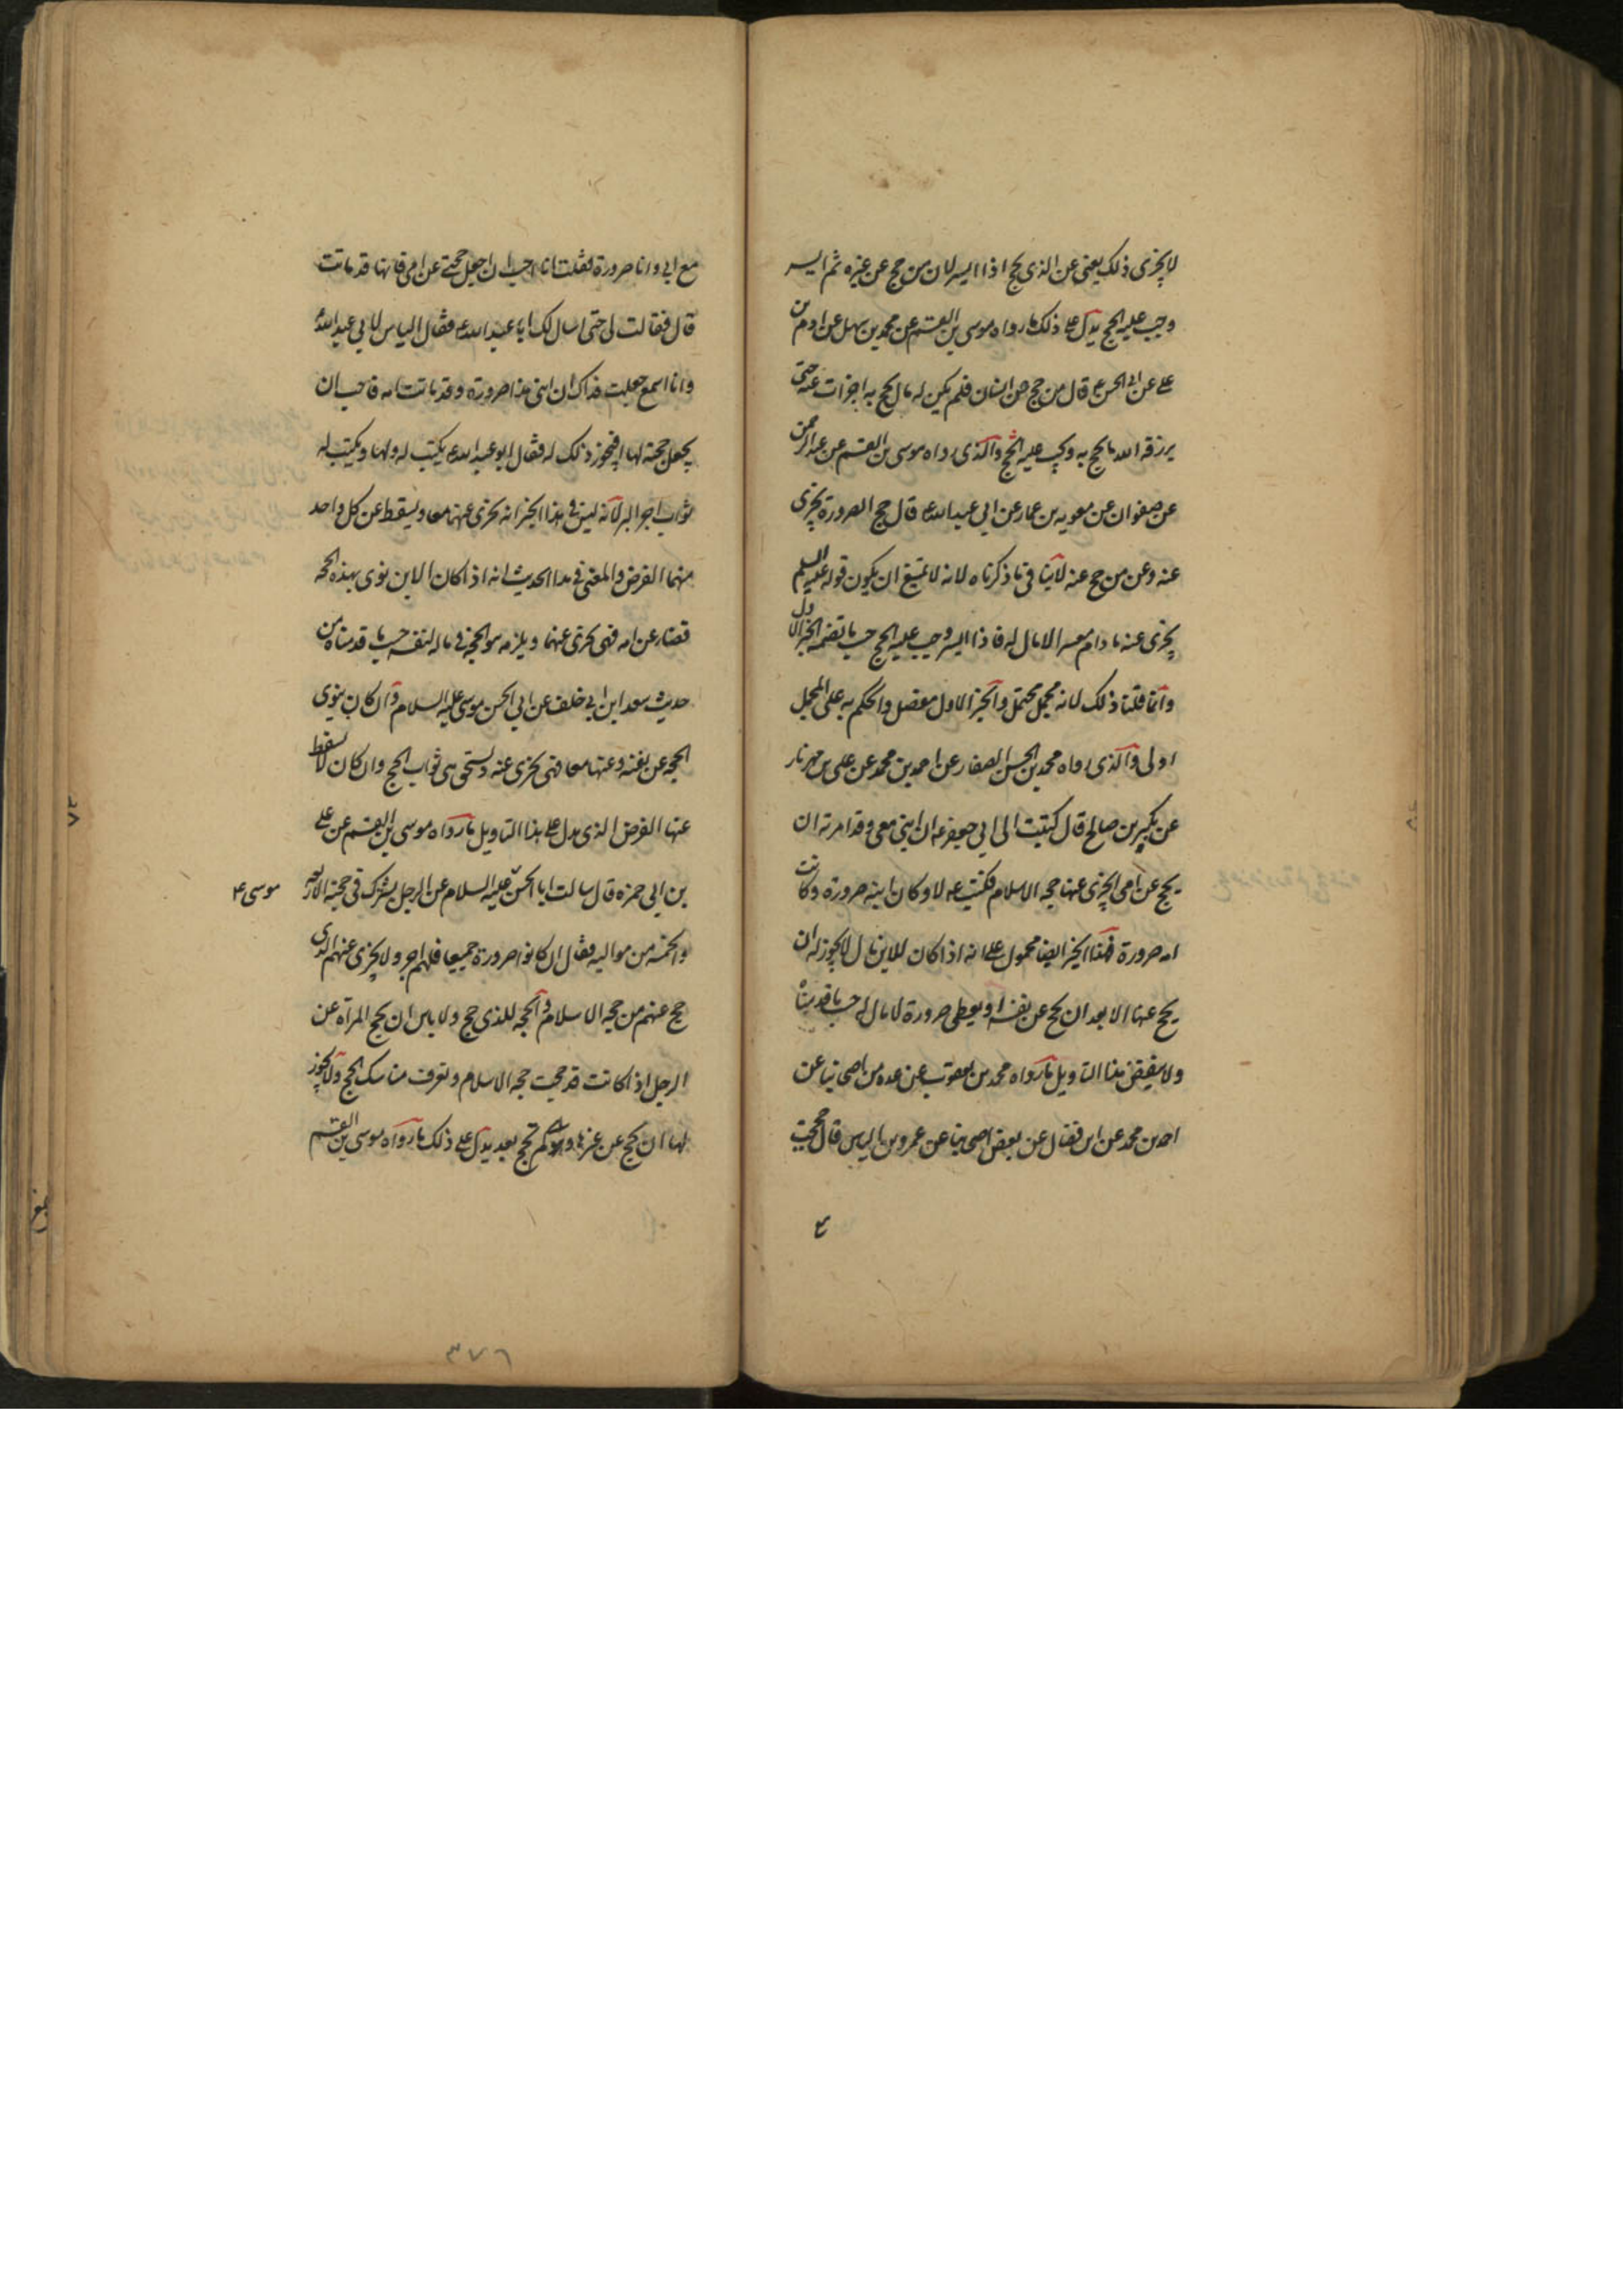 لا يجزى ذلك يعنى عن الذى يحج اذا ايسر لان من حج عن غيره ثم ايسر
وجب عليه الحج يدل على ذلك ما رواه موسى بن القسم عن محمد بن سهل عن ادم بن
على عن ابى الحسن ع قال من حج عن انسان فلم يكن له مال يحج به اجزات عنه حتى
يرزقه الله ما يحج به ويجب عليه الحج والذى رواه موسى بن القسم عن عبد الرحمن
عن صفوان عن معويه بن عمار عن ابى عبد الله ع قال حج الصرورة يجزى
عنه وعن من حج عنه لا ينافى ما ذكرناه لانه لا يمتنع ان يكون قوله عليه السلم
يجزى عنه ما دام معسرا لا مال له فاذا ايسر وجب عليه الحج حسب ما تضمنه الخبر الاول
وانما قلنا ذلك لانه مجمل محتمل والخبر الاول مفصل والحكم به على المجمل
اولى والذى رواه محمد بن الحسن الصفار عن احمد بن محمد عن على بن مهزيار
عن بكير بن صالح قال كتبت الى ابى جعفر ع ان ابنى معى وقد امرته ان
يحج عن امى ايجزى عنها حجه الاسلام فكتب ع لا وكان ابنه صرورة وكانت
امه صرورة فهذا الخبر ايضا محمول على انه اذا كان للابن مال لا يجوز له ان
يحج عنها الا بعد ان يحج عن نفسه او يعطى صرورة لا مال له حسب ما قدمناه
ولا ينقض هذا التاويل ما رواه محمد بن يعقوب عن عده من اصحابنا عن
احمد بن محمد عن ابن فضال عن بعض اصحابنا عن عمرو بن الياس قال حججت
مع ابى وانا صرورة فقلت انا احب ان اجعل حجتى عن امى فانها قد ماتت
قال فقالت لى حتى اسال لك ابا عبد الله ع فقال الياس لابى عبد الله ع
وانا اسمع جعلت فداك ان ابنى هذا صرورة وقد ماتت امه فاحب ان
يجعل حجته لها افيجوز ذلك له فقال ابو عبد الله ع يكتب له ولها ويكتب له
ثواب اجر البر لانه ليس فى هذا الخبر انه يجزى عنهما معا ويسقط عن كل واحد
منهما الفرض والمعنى فى هذا الحديث انه اذا كان الابن نوى بهذه الحجه
قضاء عن امه فهى تجزى عنها ويلزمه هو الحج فى ماله لنفسه حسب ما قدمناه من
حديث سعد ابن ابى خلف عن ابى الحسن موسى عليه السلام وان كان ينوى
الحجه عن نفسه وعنها معا فهى تجزى عنه وتستحق هى ثواب الحج وان كان لا يسقط
عنها الفرض الذى يدل على هذا التاويل ما رواه موسى بن القسم عن على
بن ابى حمزه قال سالت ابا الحسن عليه السلام عن الرجل يشرك فى حجته الاربعه
موسى ع
والخمسه من مواليه فقال ان كانوا صرورة جميعا فلهم اجر ولا يجزى عنهم الذى
حج عنهم من حجه الاسلام والحجه للذى حج ولا باس ان يحج المراه عن
الرجل اذا كانت قد حجت حجه الاسلام وتعرف مناسك الحج ولا يجوز
لها ان تحج عن غيرها وهى لم تحج بعد يدل على ذلك ما رواه موسى بن القسم
٣٧٦